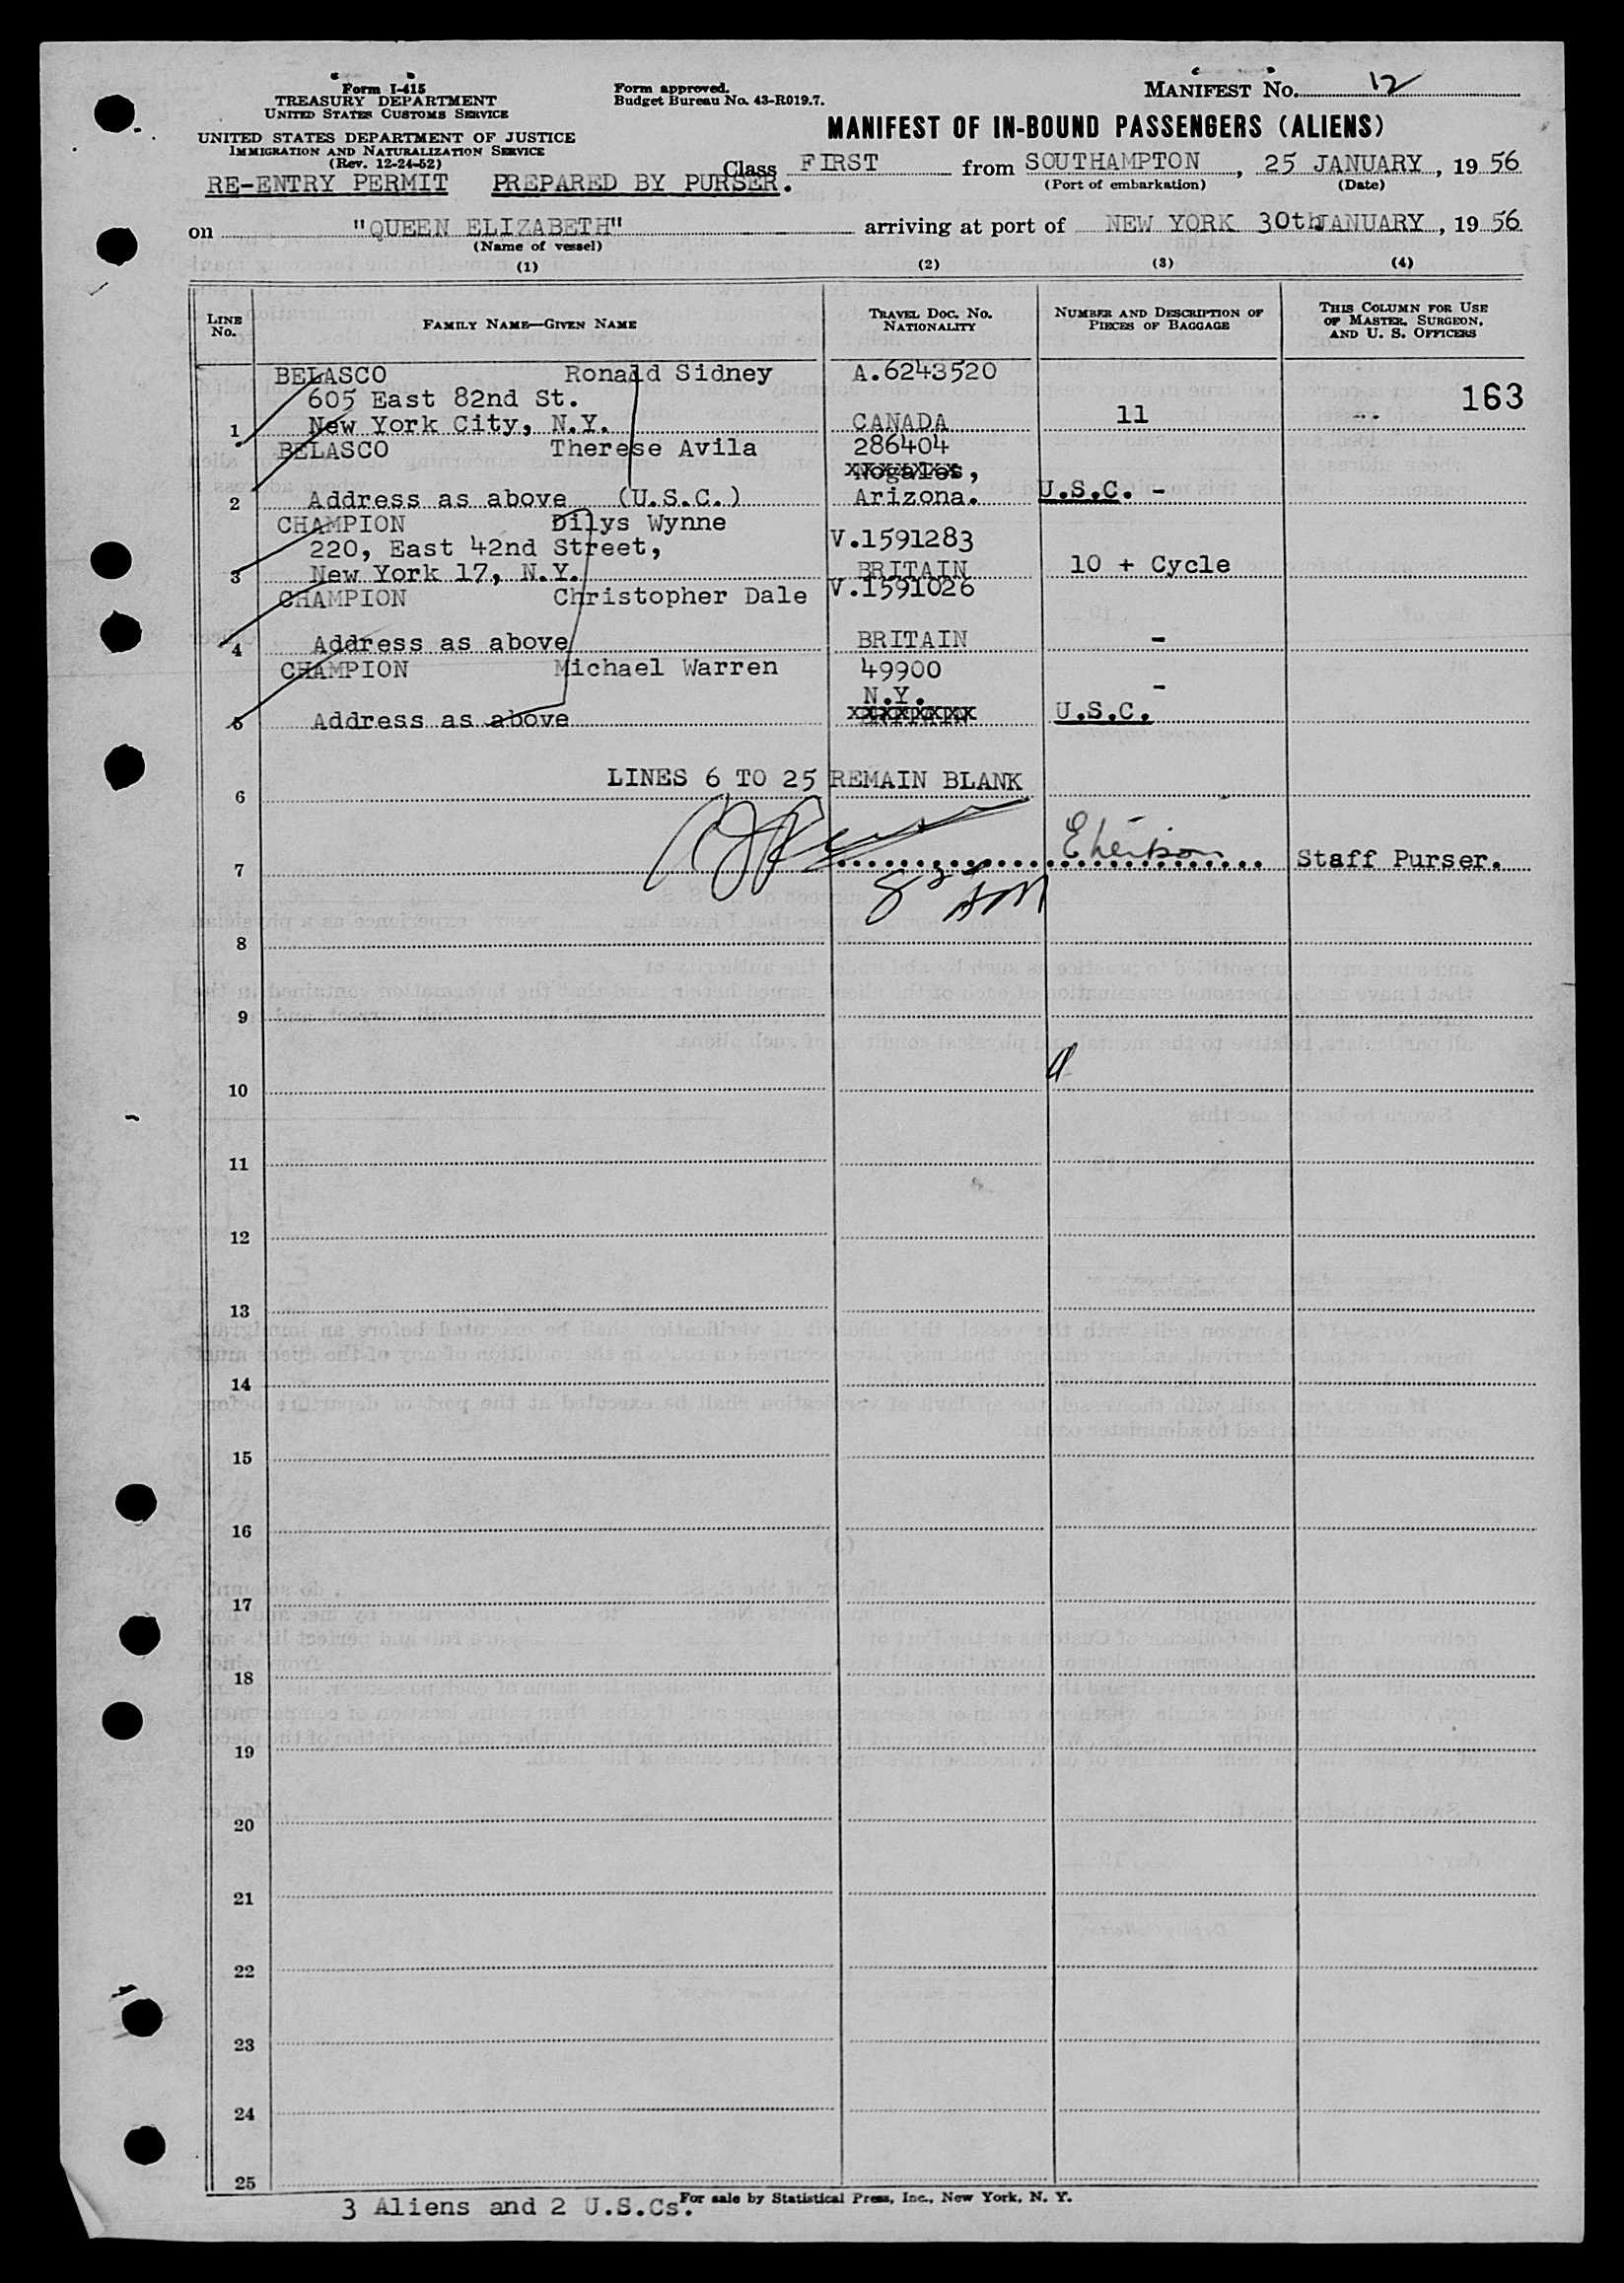 Form I-415
TREASURY DEPARTMENT
UNITED STATES CUSTOMS SERVICE
UNITED STATES DEPARTMENT OF JUSTICE
IMMIGRATION AND NATURALIZATION SERVICE
(Rev. 12-24-52)
Form approved.
Budget Bureau No. 43-R019.7.
MANIFEST NO. 12
MANIFEST OF IN-BOUND PASSENGERS (ALIENS)
RE-ENTRY PERMIT PREPARED BY PURSER.
Class FIRST from SOUTHAMPTON, 25 JANUARY, 19 56
(Port of embarkation) (Date)
on "QUEEN ELIZABETH" arriving at port of NEW YORK 30th JANUARY, 19 56
(Name of vessel)
(1) (2) (3) (4)
LINE NO. FAMILY NAME—GIVEN NAME TRAVEL DOC. NO. NATIONALITY NUMBER AND DESCRIPTION OF PIECES OF BAGGAGE THIS COLUMN FOR USE OF MASTER, SURGEON, AND U. S. OFFICERS
BELASCO Ronald Sidney A.6243520
605 East 82nd St. 163
1 New York City, N.Y. CANADA 11 --
BELASCO Therese Avila 286404
Nogales,
2 Address as above (U.S.C.) Arizona. U.S.C. -
CHAMPION Dilys Wynne
220, East 42nd Street, V.1591283
3 New York 17, N.Y. BRITAIN 10 + Cycle
CHAMPION Christopher Dale V.1591026
4 Address as above BRITAIN -
CHAMPION Michael Warren 49900
N.Y. -
5 Address as above U.S.C.
LINES 6 TO 25 REMAIN BLANK
6
7 Staff Purser.
8
9
10
11
12
13
14
15
16
17
18
19
20
21
22
23
24
25
For sale by Statistical Press, Inc., New York, N. Y.
3 Aliens and 2 U.S.Cs.